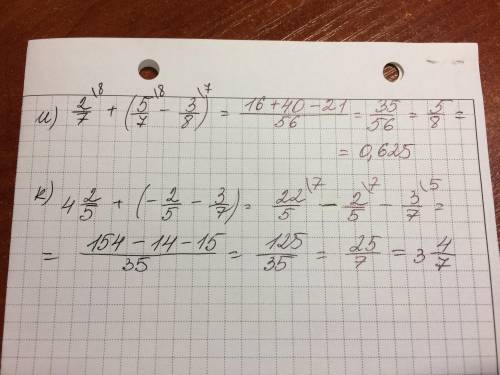 и) 2/7 \8 + (5/7 \8 - 3/8 \7) = (16 + 40 - 21)/56 = 35/56 = 5/8 =
= 0,625
к) 4 2/5 + (-2/5 - 3/7) = 22/5 \7 - 2/5 \7 - 3/7 \5 =
= (154 - 14 - 15)/35 = 125/35 = 25/7 = 3 4/7